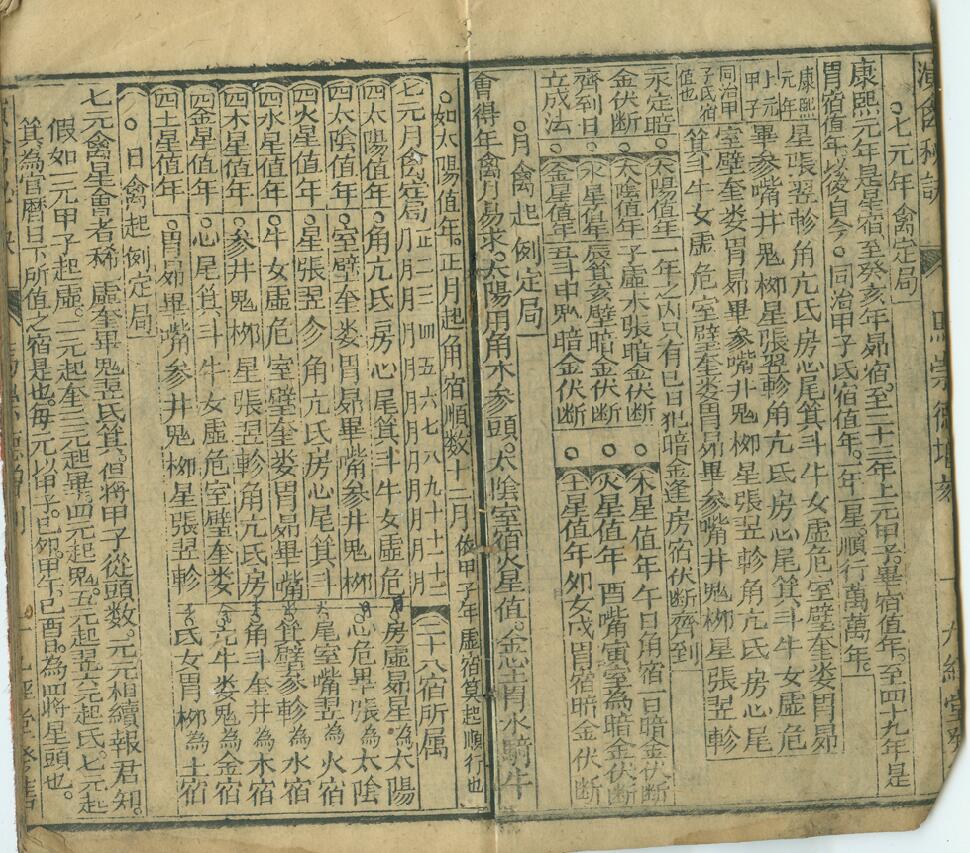 演禽秘訣
○七元年禽定局
康熙元年是星宿至癸亥年昴宿。至二十三年上元甲子。畢宿值年。至四十九年是
胃宿值年以後自今。○同治甲子氐宿值年。一年一星。順行萬萬年。
康熙元年
星張翌軫角亢氐房心尾箕斗牛女虛危室壁奎娄胃昴
上元甲子
畢参嘴井鬼柳星張翌軫角亢氐房心尾箕斗牛女虛危
同治甲子氐宿值也
室壁奎娄胃昴畢参嘴井鬼柳星張翌軫角亢氐房心尾
箕斗牛女虛危室壁奎娄胃昴畢参嘴井鬼柳星張翌軫
永定暗金伏断齊到日立成法
○太陽值年一年之内只有巳日犯暗金逢房宿伏断齊到
○太陰值年子虛未張暗金伏断
○水星值年辰箕亥壁暗金伏断
○金星值年丑斗申鬼暗金伏断
○木星值年午日角宿一日暗金伏断
○火星值年酉嘴寅室為暗金伏断
○土星值年卯女戌胃宿暗金伏断
○月禽起例定局
會得年禽月易求。太陽用角木参頭。太陰室宿火星值。金心土胃水騎牛
○如太陽值年。正月起角宿順数十二月
依甲子年虛宿箕起順行也
七元月禽定局
正月二月三月四月五月六月七月八月九月十月十一月十二月
四太陽值年○角亢氐房心尾箕斗牛女虛危
四太陰值年○室壁奎娄胃昴畢嘴参井鬼柳
四火星值年○星張翌軫角亢氐房心尾箕斗
四水星值年○牛女虛危室壁奎娄胃昴畢嘴
四木星值年○参井鬼柳星張翌軫角亢氐房
四金星值年○心尾箕斗牛女虛危室壁奎娄
四土星值年○胃昴畢嘴参井鬼柳星張翌軫
二十八宿所属
房虛昴星為太陽
心危畢張為太陰
尾室嘴翌為火宿
箕壁参軫為水宿
角斗奎井為木宿
亢牛娄鬼為金宿
氐女胃柳為土宿
○日禽起例定局
七元禽星會者稀 虛奎畢鬼翌氐箕。但將甲子從頭数。元元相續報君知。
假如一元甲子起虛。二元起奎三元起畢。四元起鬼。五元起翌六元起氐。七元起
箕。為官曆日下所值之宿是也。每元以甲子。己卯。甲午。己酉。為四將星頭也。